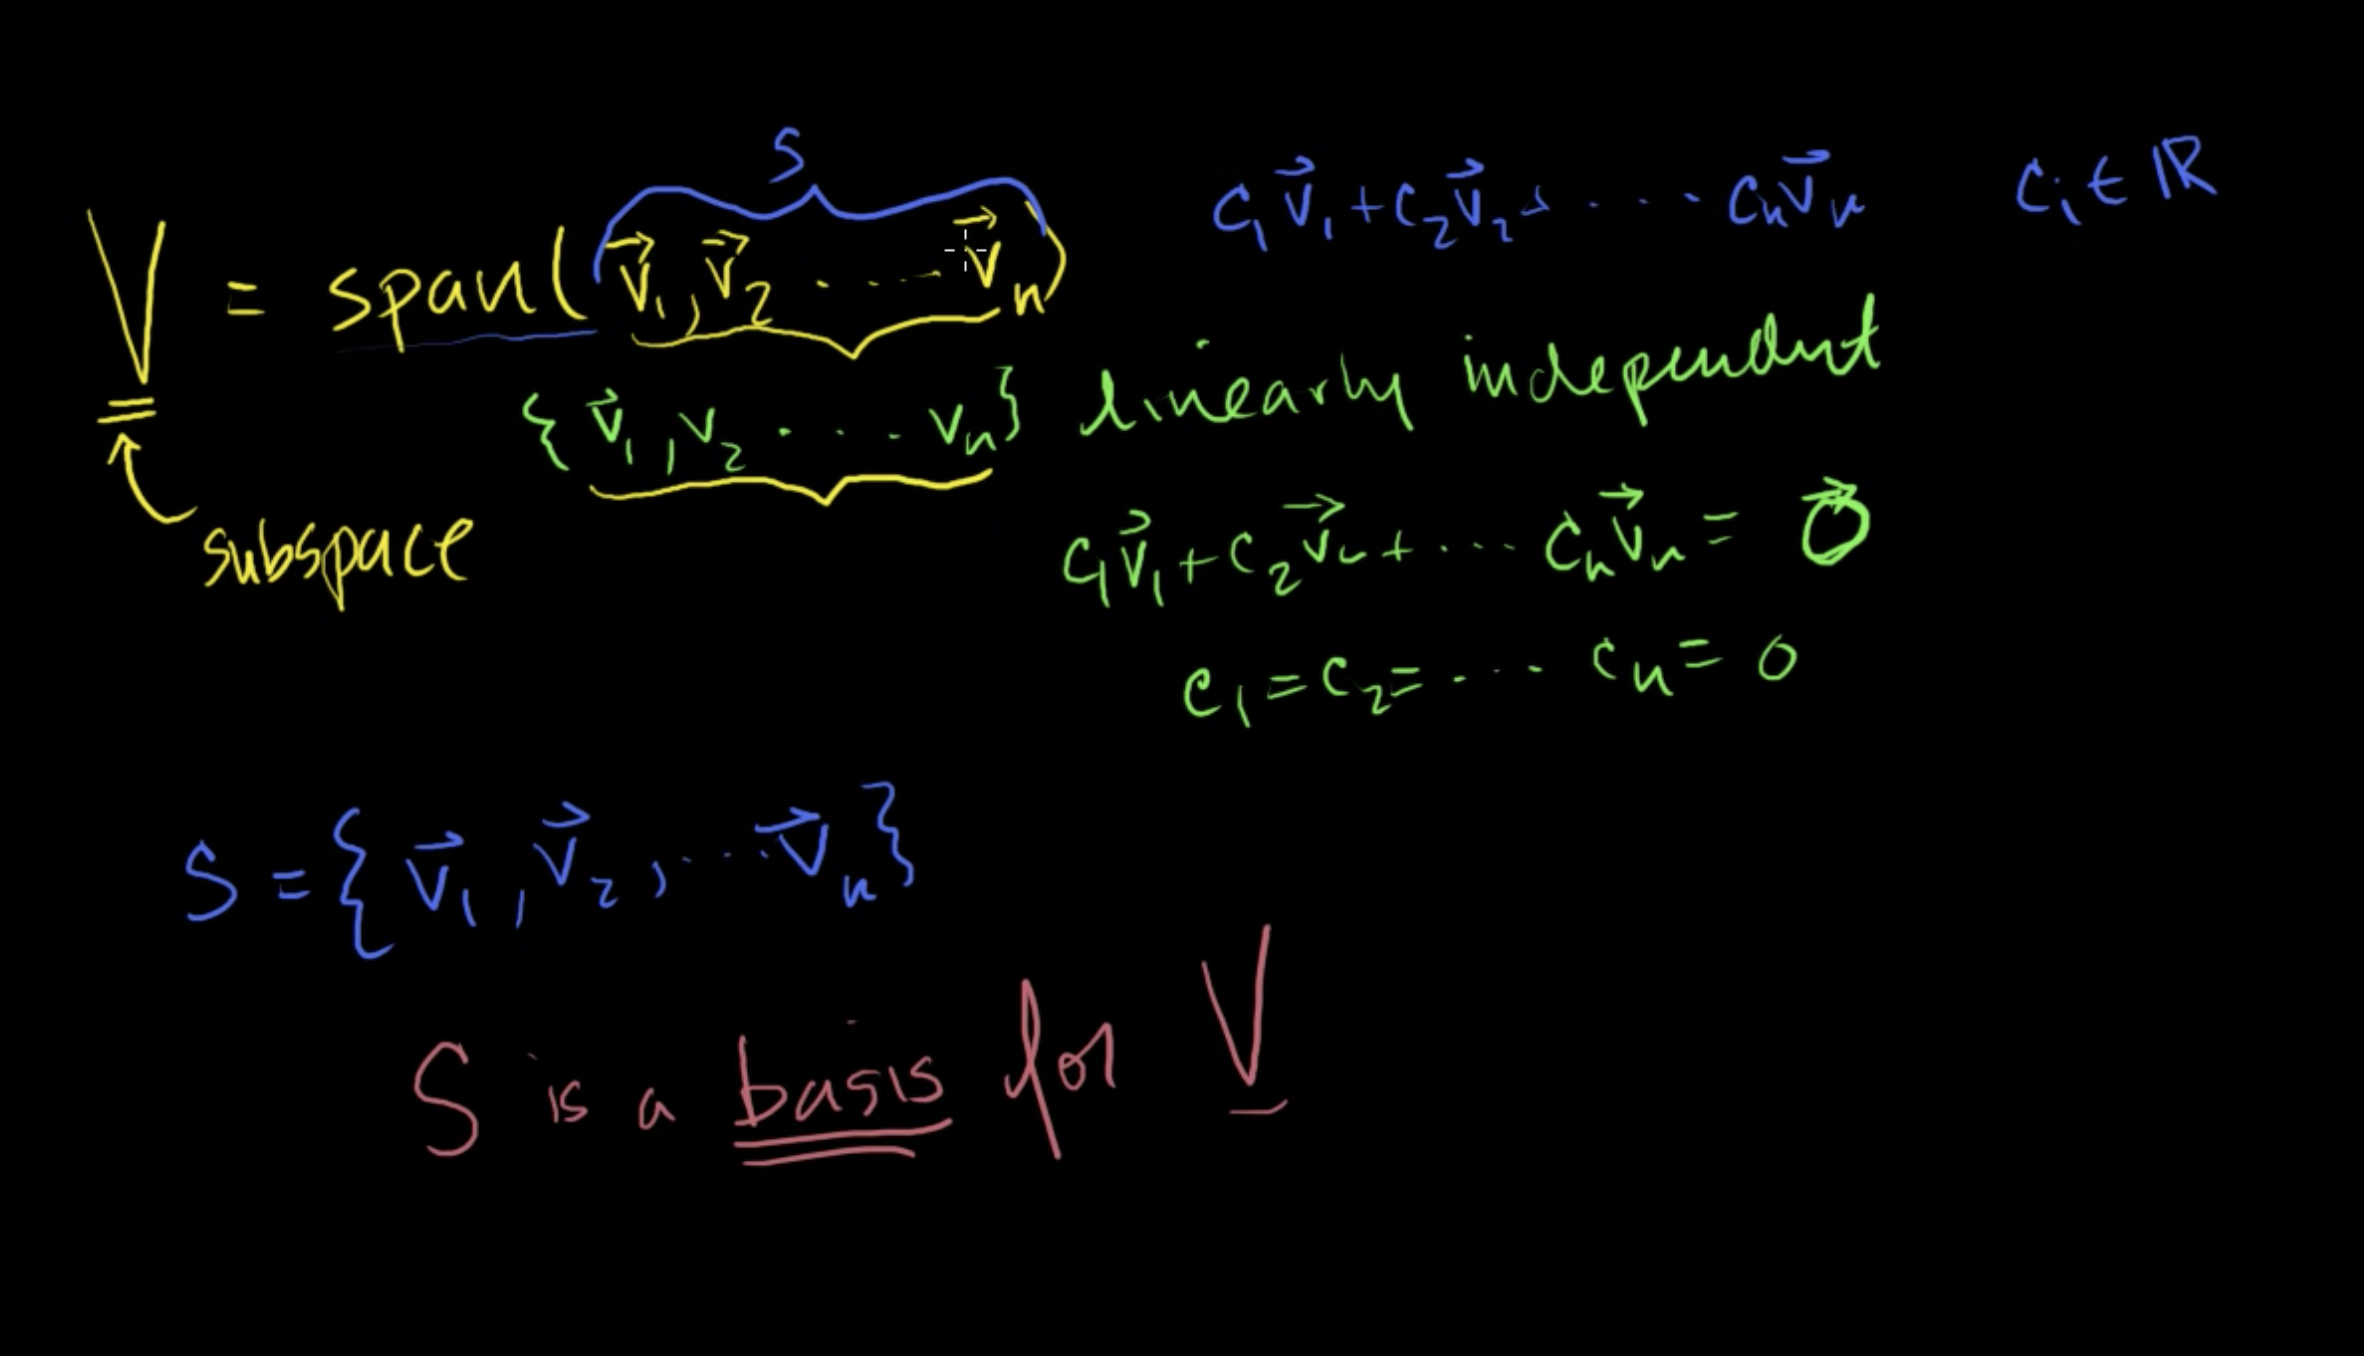 S
c₁v⃗₁ + c₂v⃗₂ + ... cₙv⃗ₙ cᵢ ∈ ℝ
V = span(v⃗₁, v⃗₂ ... v⃗ₙ)
{v⃗₁, v₂ ... vₙ} linearly independent
subspace
c₁v⃗₁ + c₂v⃗₂ + ... cₙv⃗ₙ = 0⃗
c₁ = c₂ = ... cₙ = 0
S = {v⃗₁, v⃗₂, ... v⃗ₙ}
S is a basis for V